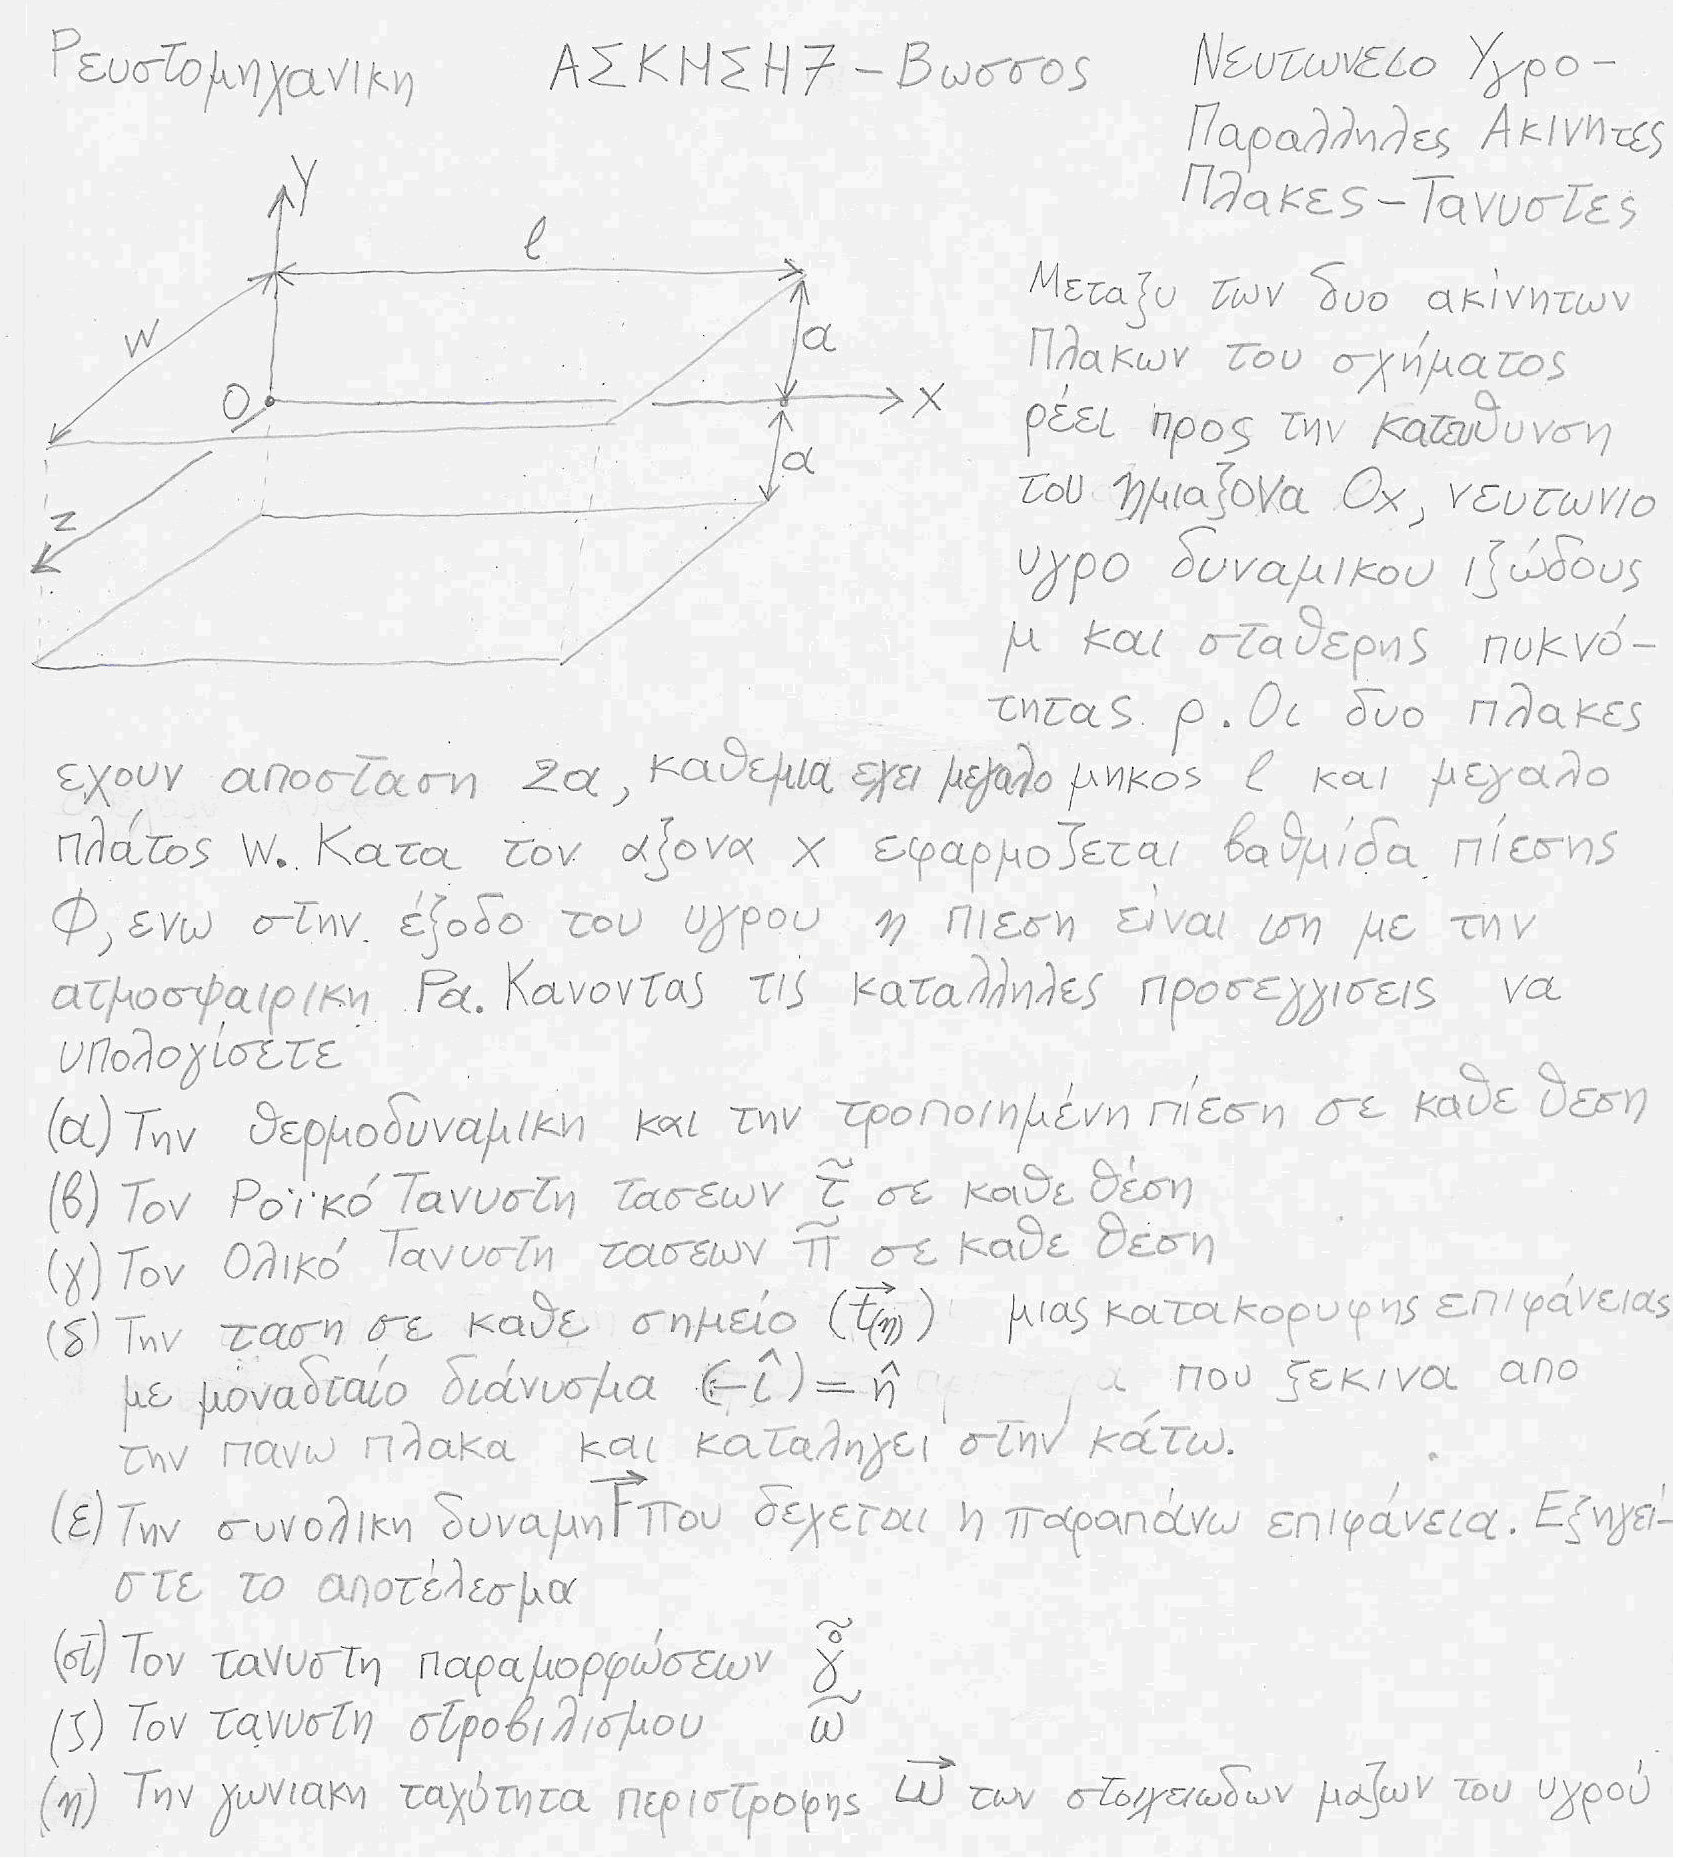 Ρευστομηχανικη ΑΣΚΗΣΗ7 - Βωσσος Νευτωνειο Υγρο-
Παραλληλες Ακινητες
Πλακες - Τανυστες
y
l
w
α
O
x
α
z
Μεταξυ των δυο ακίνητων
Πλακων του σχήματος
ρέει προς την κατευθυνση
του ημιαξονα Οx, νευτωνιο
υγρο δυναμικου ιξώδους
μ και σταθερης πυκνό-
τητας ρ. Οι δυο πλακες
εχουν αποσταση 2α, καθεμια εχει μεγαλο μηκος l και μεγαλο
πλάτος w. Κατα τον αξονα x εφαρμοζεται βαθμίδα πίεσης
Φ, ενω στην έξοδο του υγρου η πιεση είναι ιση με την
ατμοσφαιρικη Pa. Κανοντας τις καταλληλες προσεγγισεις να
υπολογίσετε
(α) Την θερμοδυναμικη και την τροποιημένη πίεση σε καθε θεση
(β) Τον Ροϊκό Τανυστη τασεων τ̃ σε καθε θέση
(γ) Τον Ολικό Τανυστη τασεων π̃ σε καθε θέση
(δ) Την ταση σε καθε σημείο (t⃗(η)) μιας κατακορυφης επιφάνειας
με μοναδιαίο διάνυσμα (-î) = η̂ που ξεκινα απο
την πανω πλακα και καταληγει στην κάτω.
(ε) Την συνολικη δυναμη F⃗ που δεχεται η παραπάνω επιφάνεια. Εξηγεί-
στε το αποτέλεσμα
(στ) Τον τανυστη παραμορφώσεων γ̇̃
(ζ) Τον τανυστη στροβιλισμου ω̃
(η) Την γωνιακη ταχύτητα περιστροφης ω⃗ των στοιχειωδων μαζων του υγρού